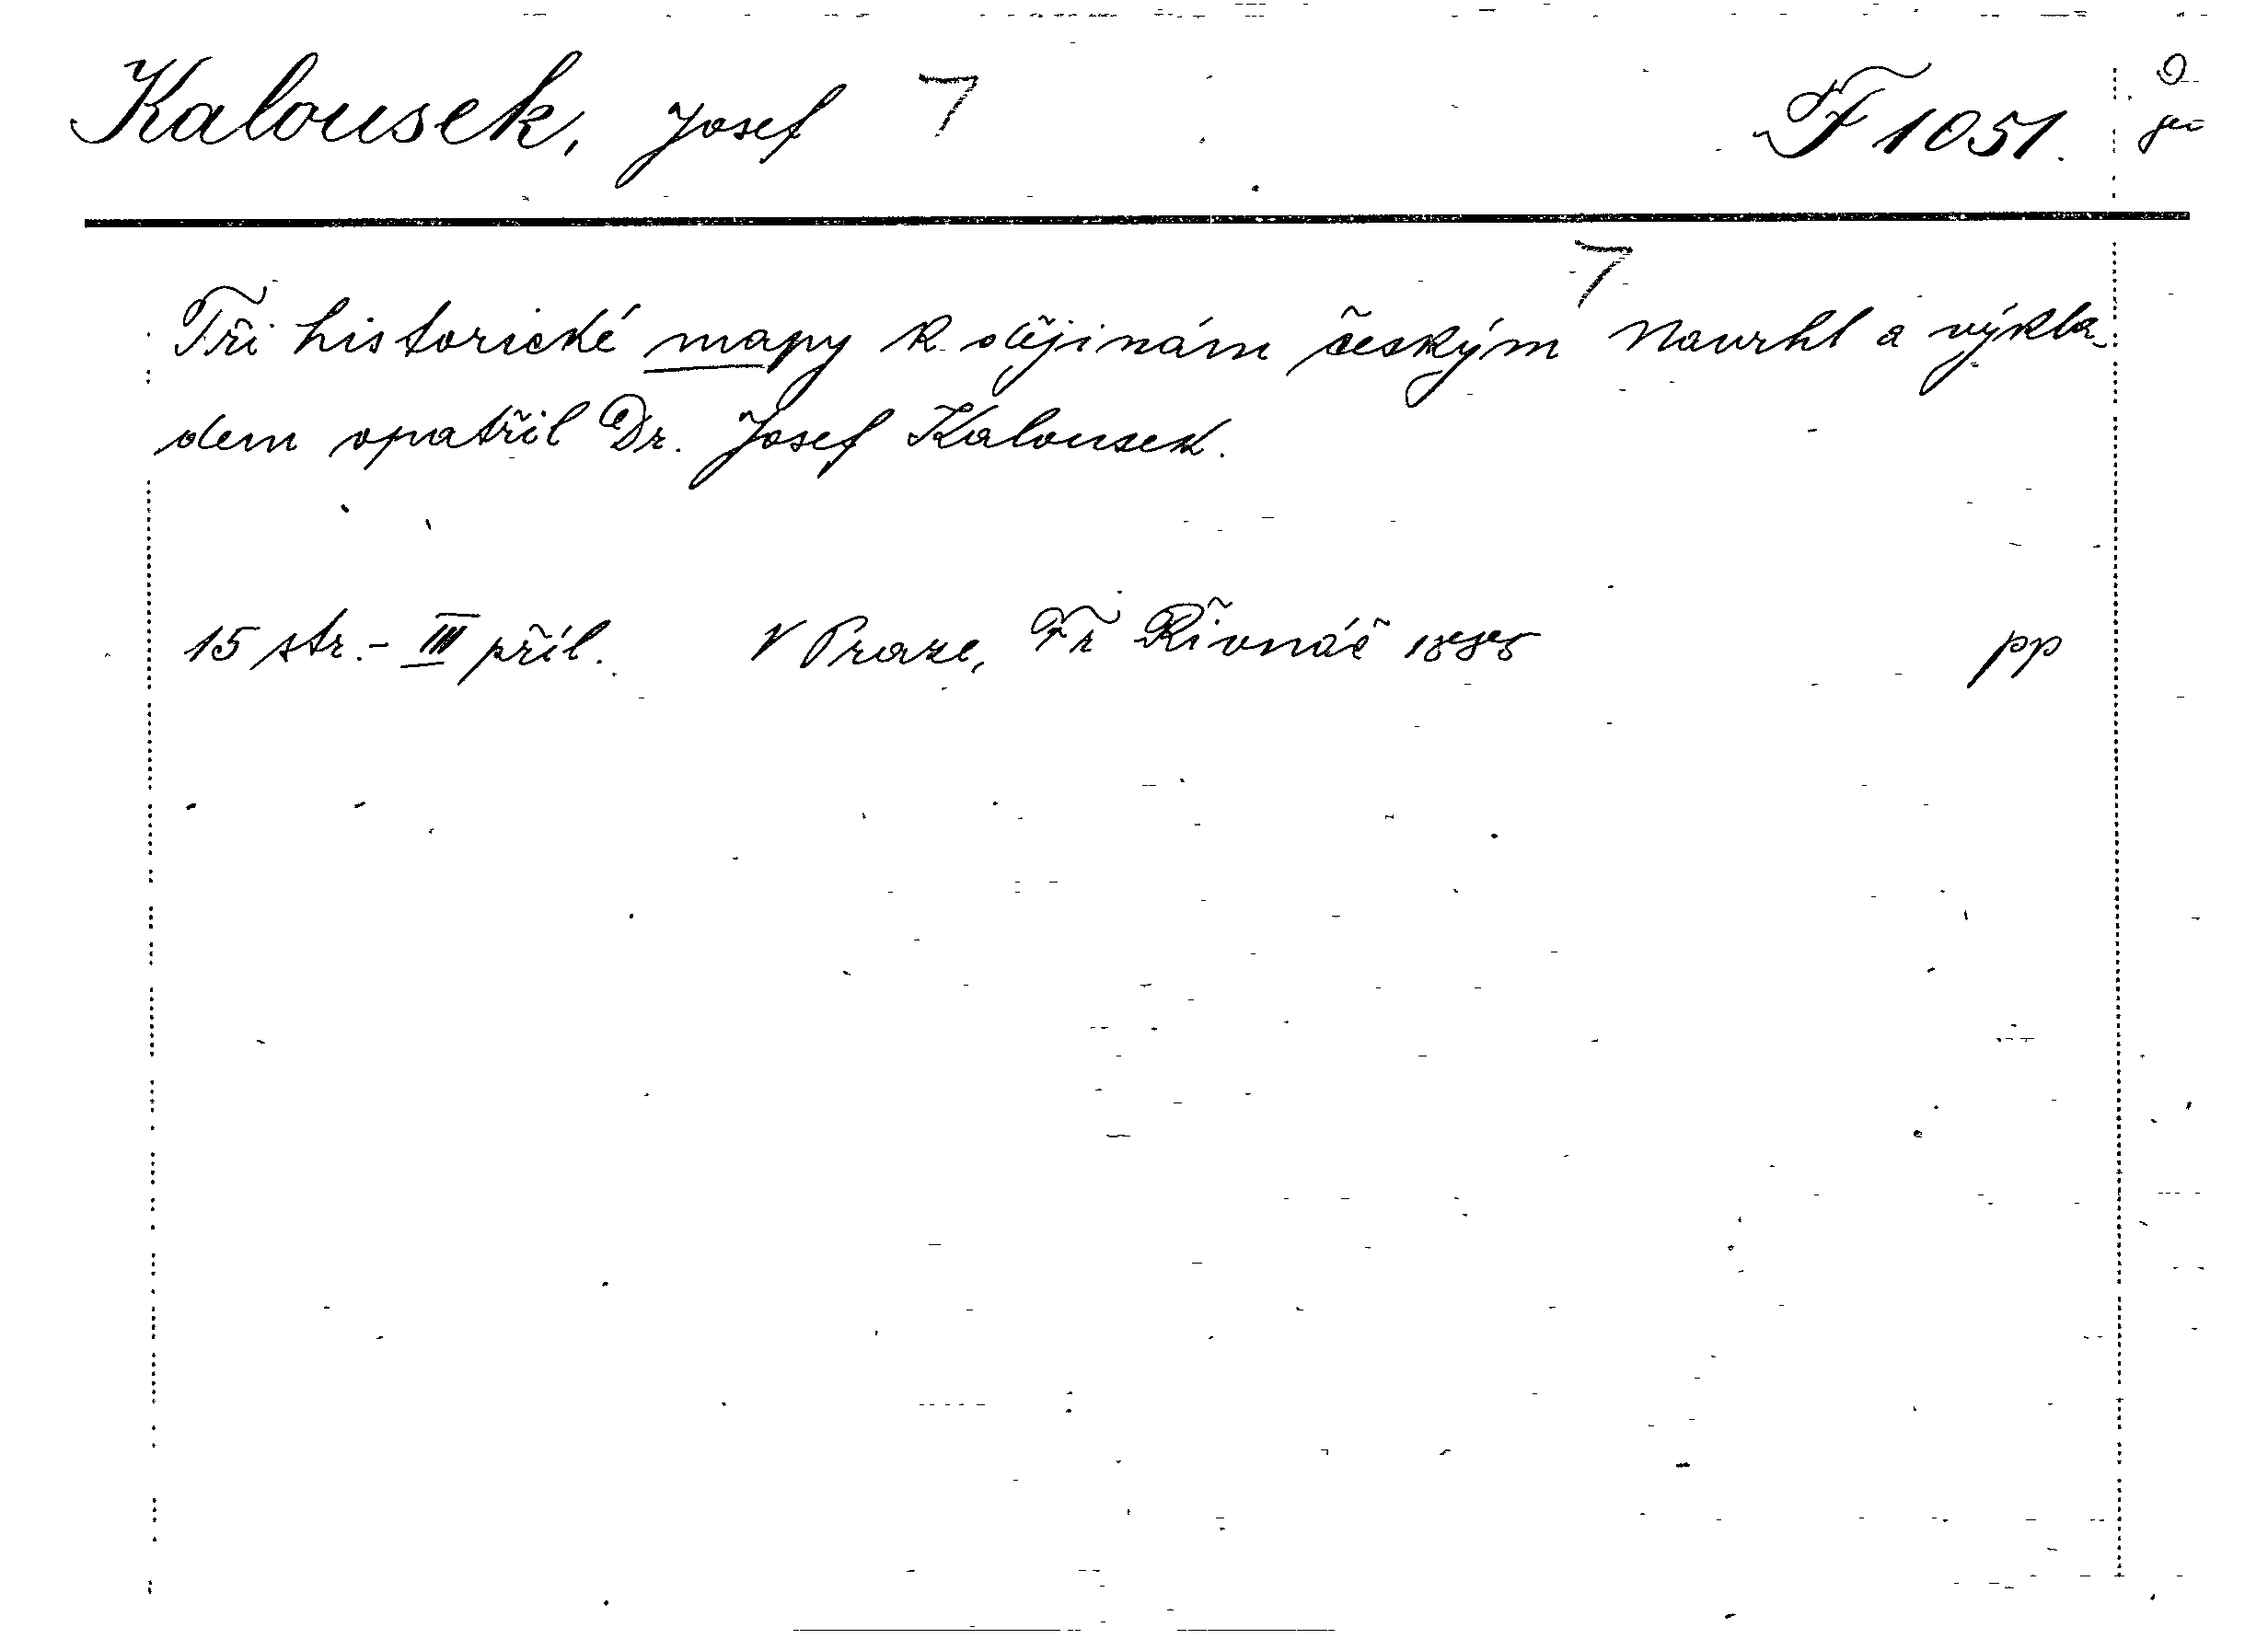 Kalousek, Josef 7 F 1051.
Tři historické mapy k dějinám českým 7 Navrhl a výkla-
dem opatřil Dr. Josef Kalousek.
15 str.- III příl. V Praze, Fr Řivnáč 1885 pp